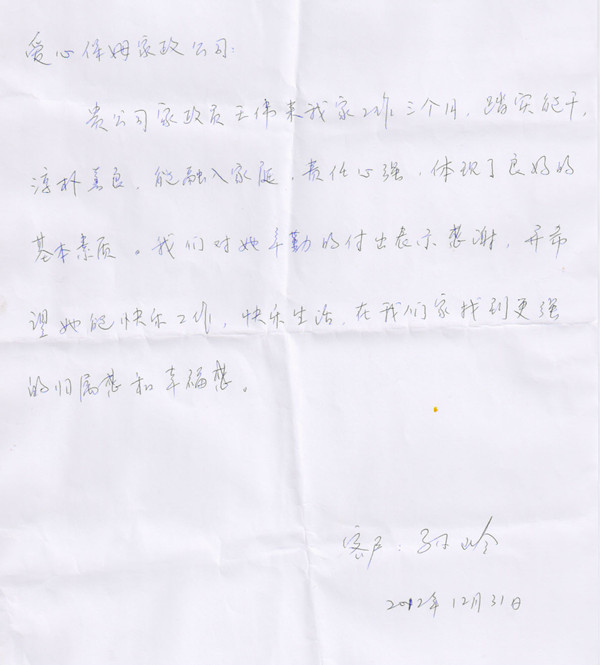 爱心保姆家政公司:
贵公司家政员王伟来我家工作三个月，踏实能干，
淳朴善良，能融入家庭，责任心强，体现了良好的
基本素质。我们对她辛勤的付出表示感谢，并希
望她能快乐工作，快乐生活，在我们家找到更强
的归属感和幸福感。
客户：孙岭
2012年12月31日